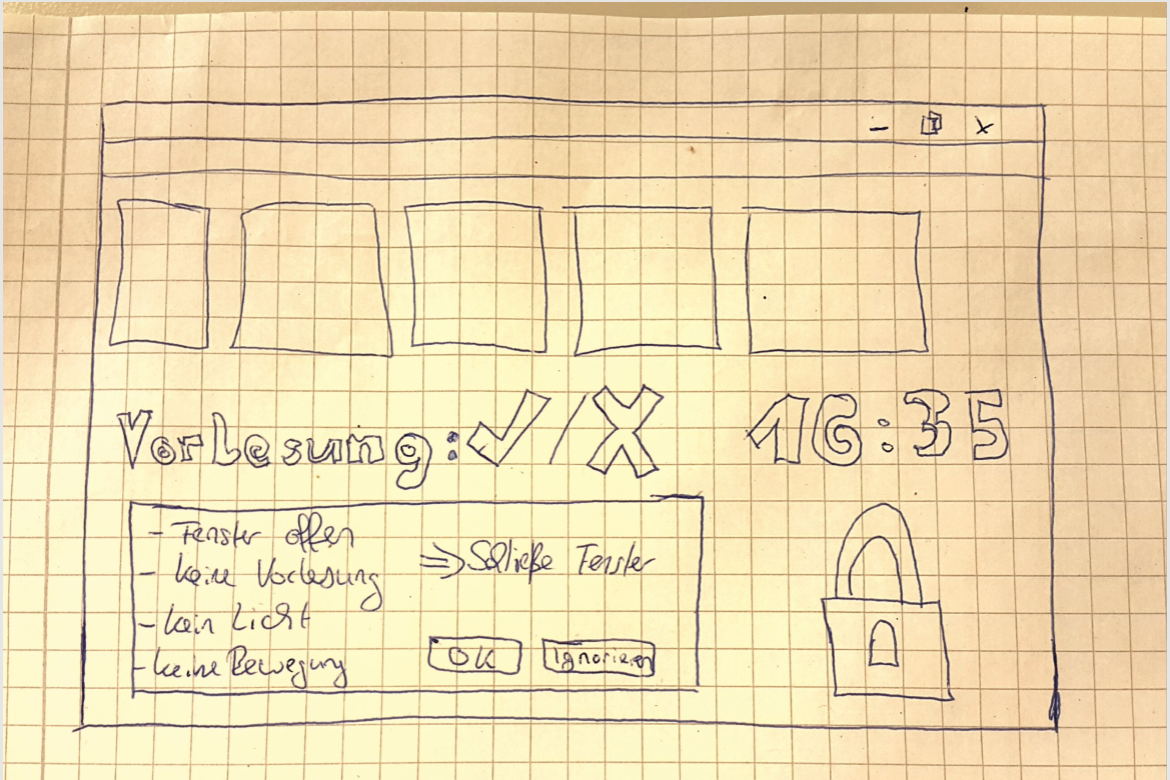 Vorlesung: ✓/X 16:35
- Fenster offen
- keine Vorlesung
- kein Licht
- keine Bewegung
=> Schließe Fenster
OK Ignorieren